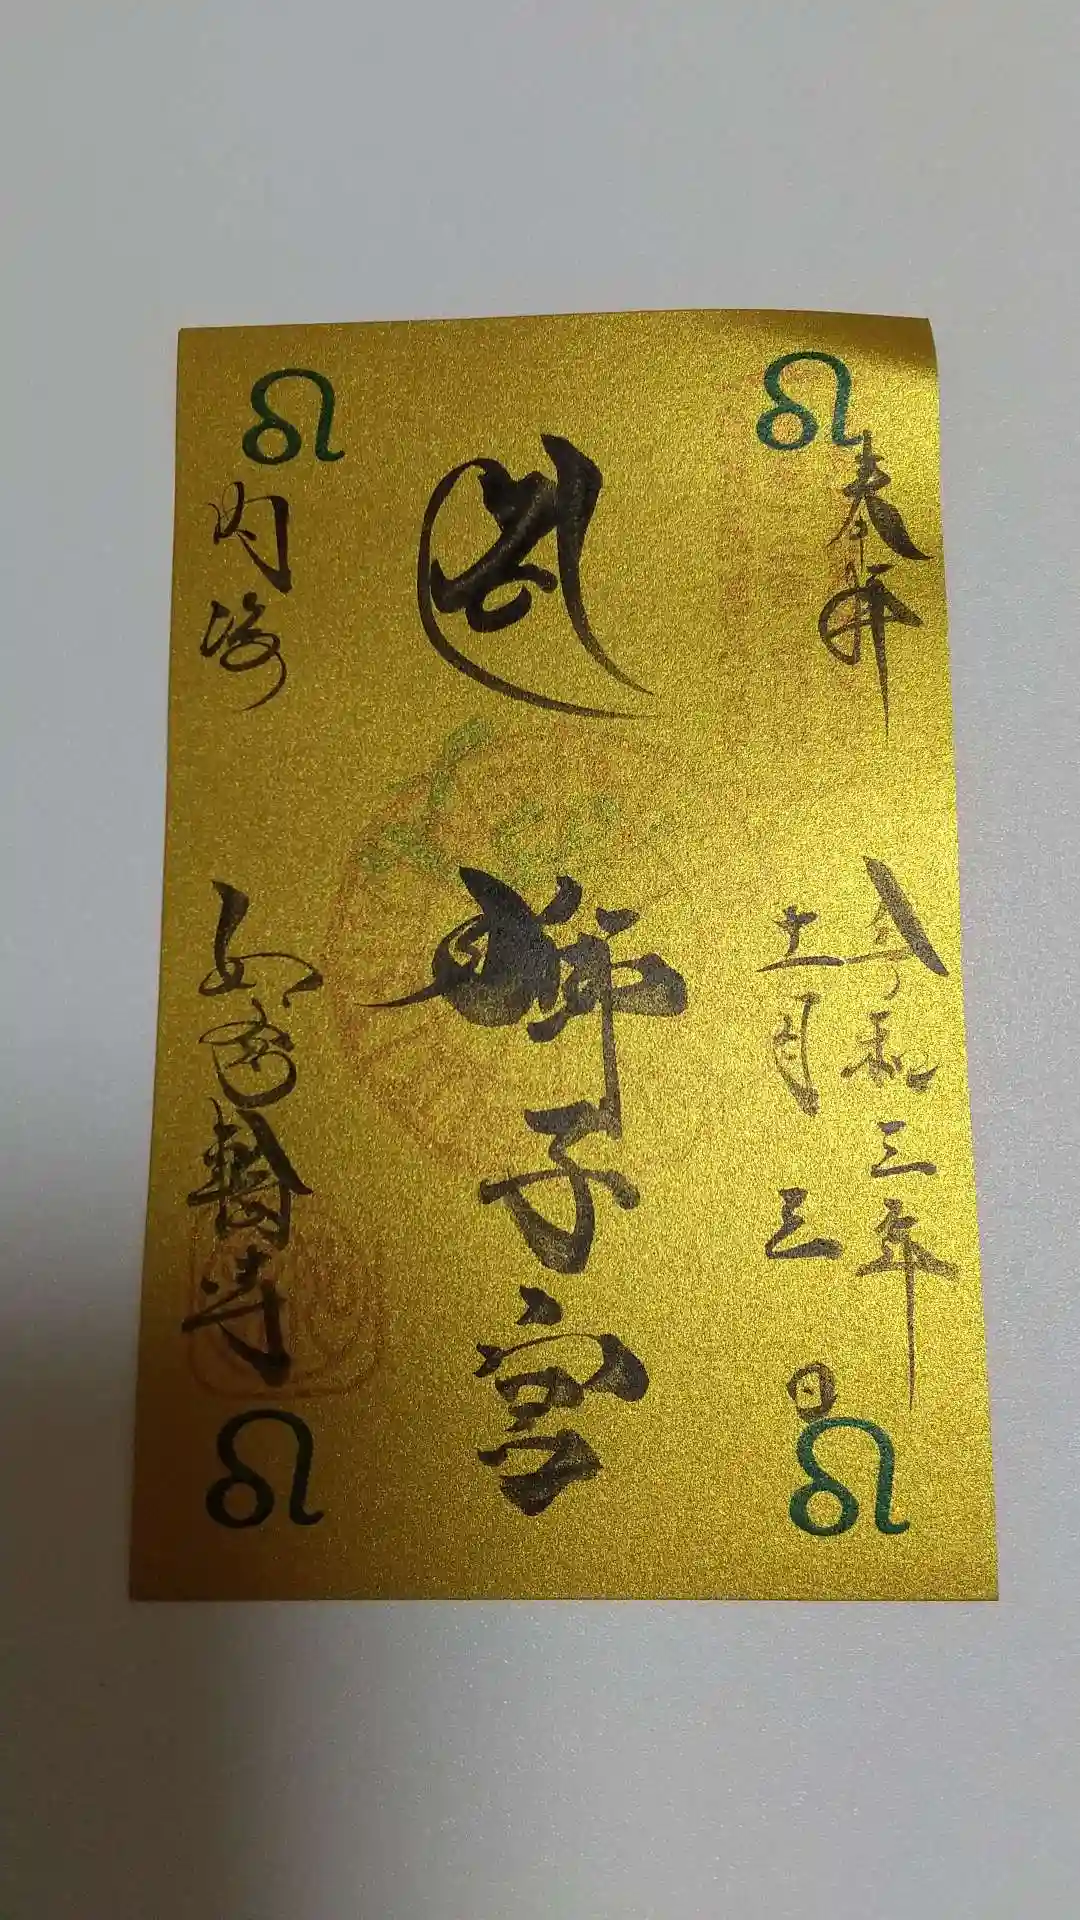 奉拝
令和三年
十一月三日
獅子宮
内海
如意輪寺